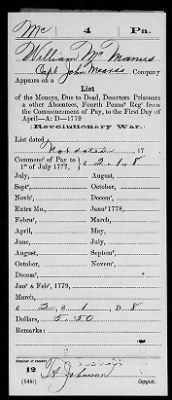 Mc 4 Pa.
William Mc Manus
Capt. John Means Company
Appears on a
List
of the Moneys, Due to Dead, Deserters Prisoners
& other Absentees, Fourth Penns' Reg' from
the Commencement of Pay, to the First Day of
April—A: D—1779
Revolutionary War.
List dated
Not dated, 17
Commenc' of Pay to
1st of July 1777, £ 2. 1. 8
July, August,
Sept', October,
Novb', Decem',
Extra Mo., Janu' 1778,
Febru', March,
April, May,
June, July,
August, Septem',
October, Novem',
Decem',
Jan' & Feb', 1779,
March,
£ 2 s 1 D 8
Dollars, 5.50
Remarks:
Number of record:
12
Johnson
Copyist.